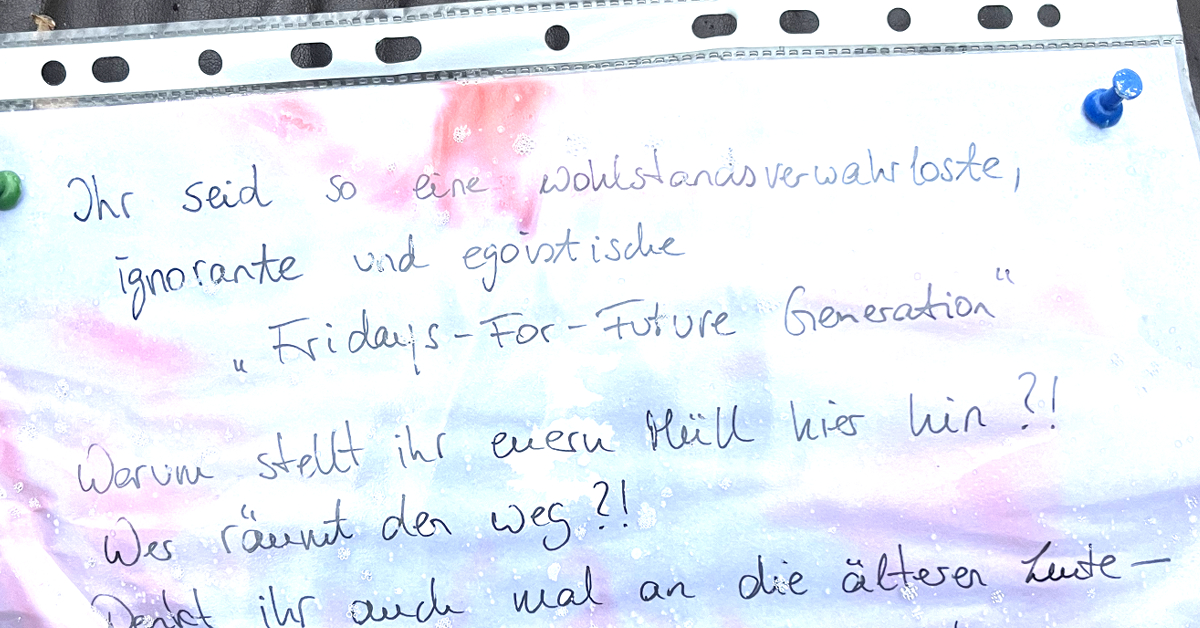 Ihr seid so eine wohlstandsverwahrloste,
ignorante und egoistische
„Fridays-For-Future Generation“
Warum stellt ihr euern Müll hier hin?!
Wer räumt den weg?!
Denkt ihr auch mal an die älteren Leute –